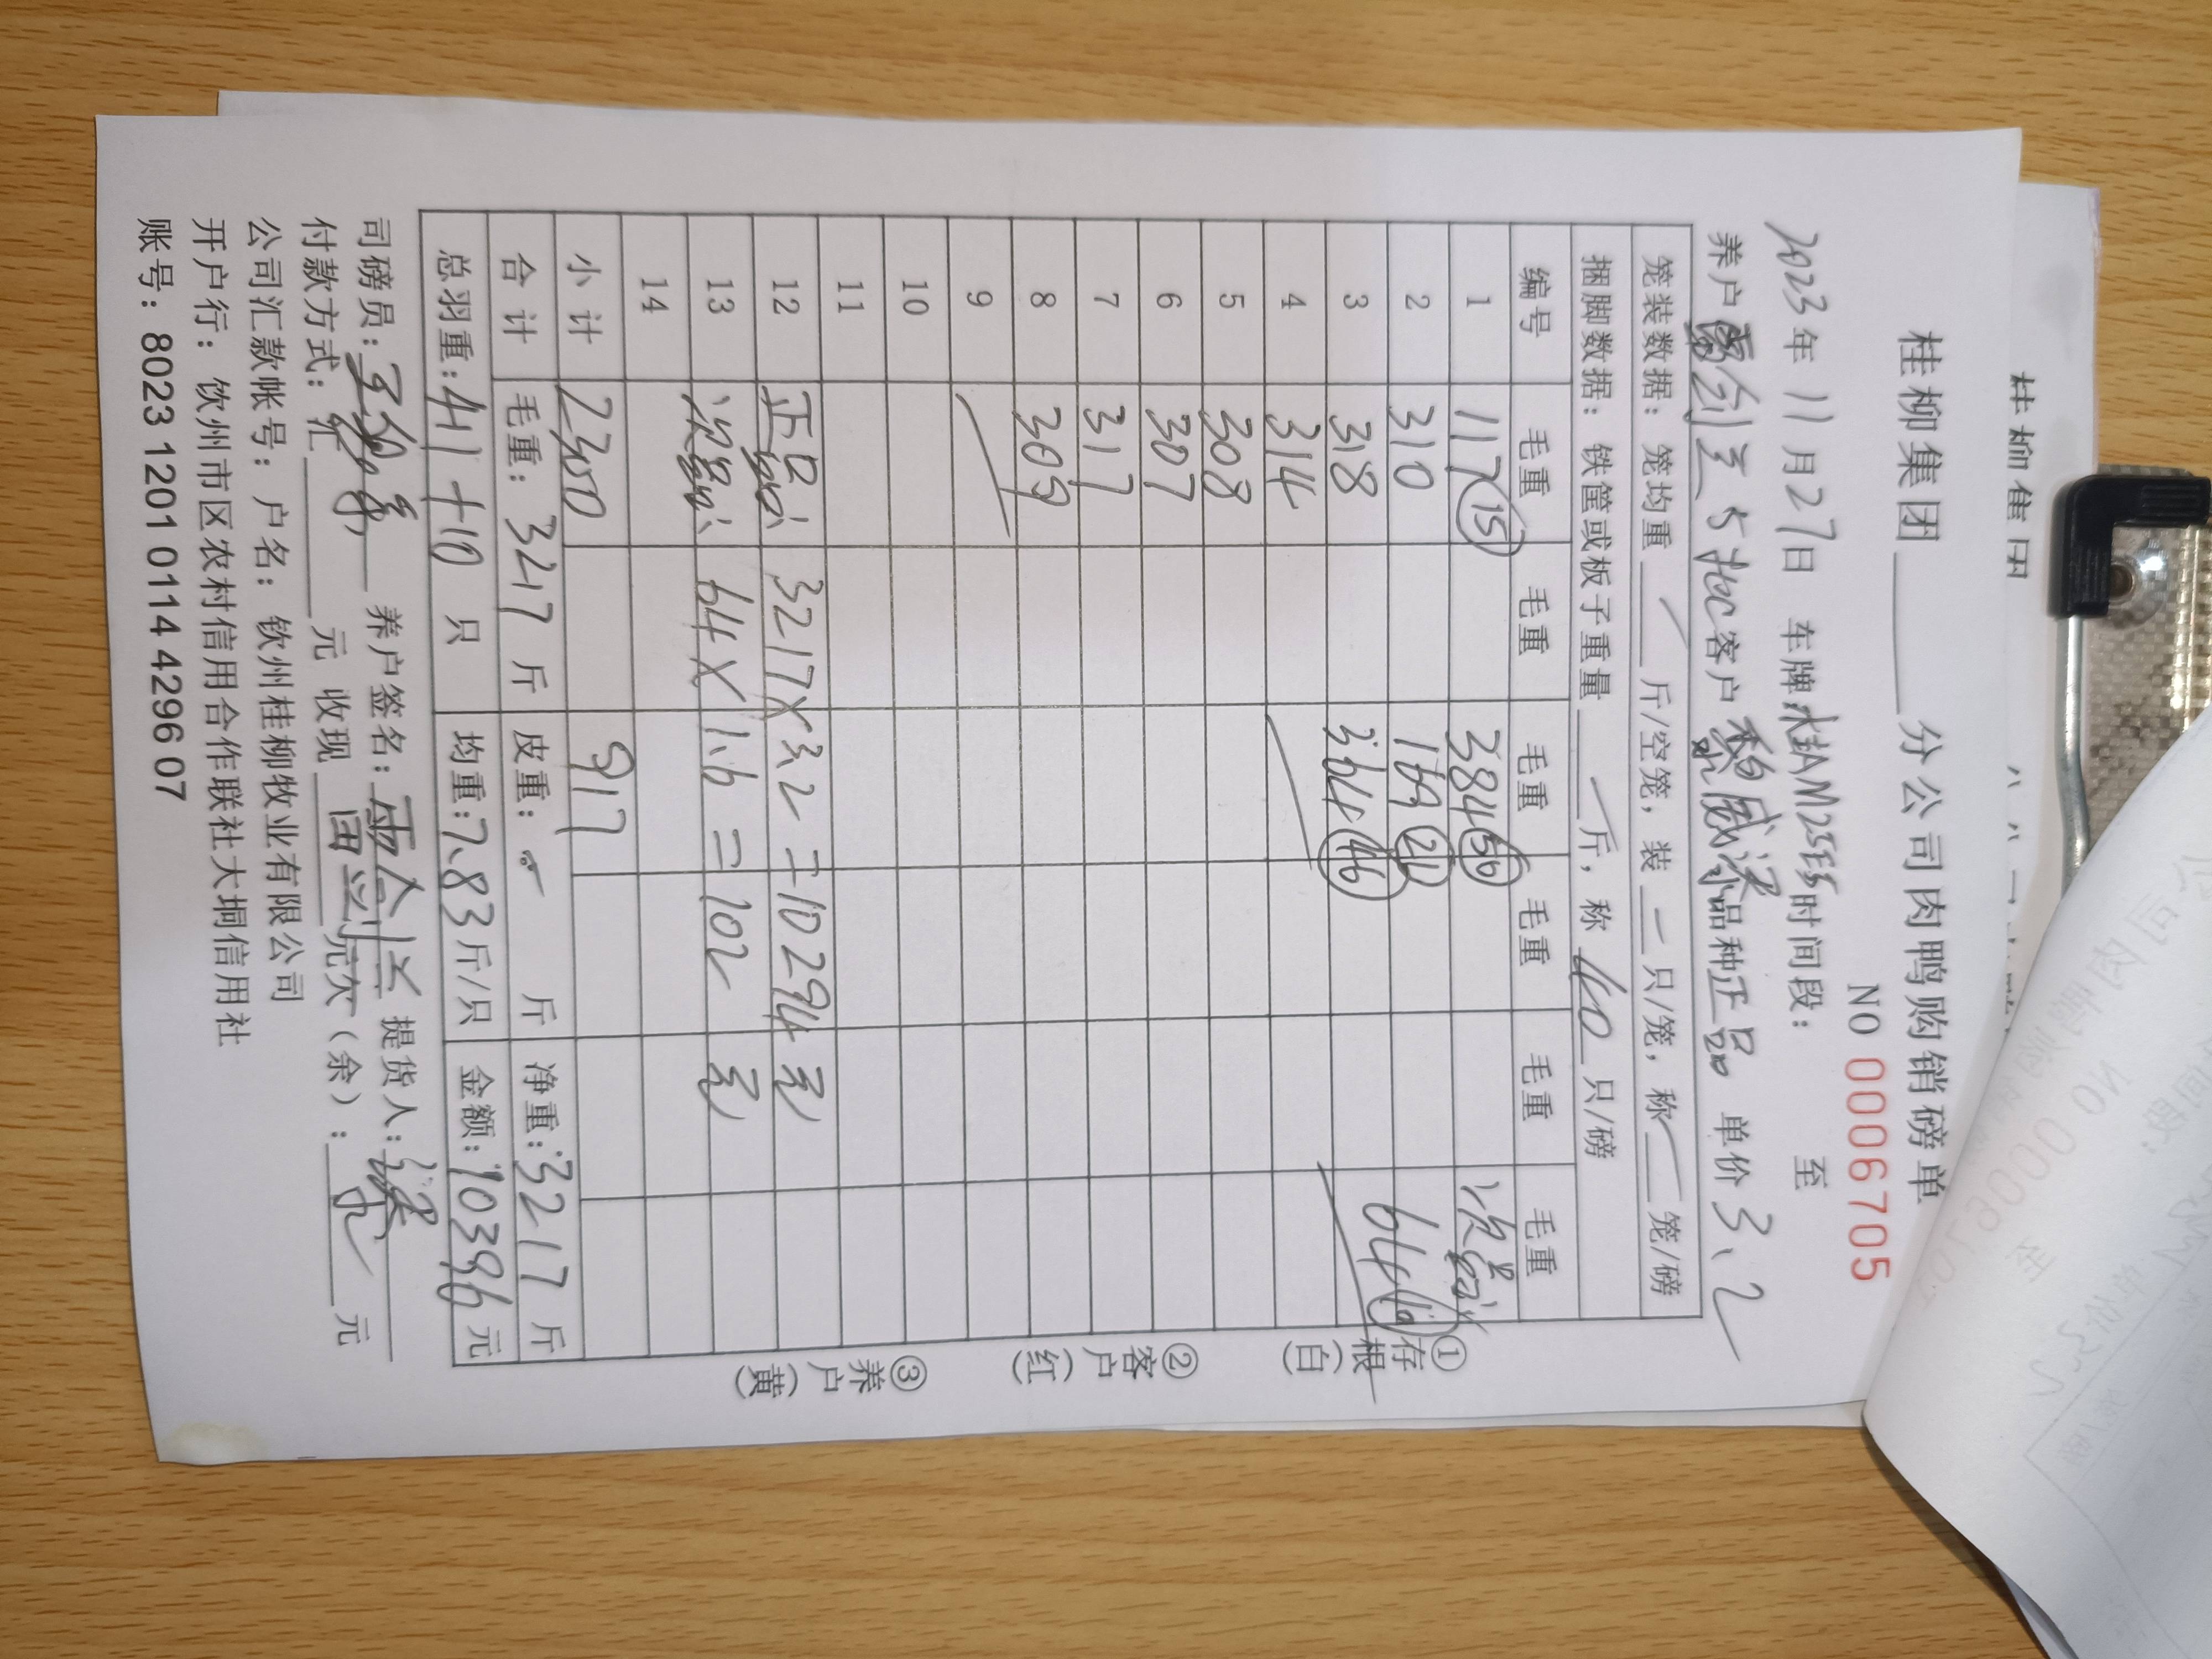 桂柳集团 分公司肉鸭购销磅单
NO 0006705
2023年11月27日 车牌:桂AM25 时间段: 至
养户 5批 客户 黎威 品种正品 单价3.2
笼装数据: 笼均重 斤/空笼, 装 只/笼, 称 笼/磅
捆脚数据: 铁筐或板子重量 斤, 称 40 只/磅
编号 毛重 毛重 毛重 毛重 毛重 毛重
1 117 15 384 50 次品
2 310 169 21 64 10
3 318 364 46
4 314
5 308
6 307
7 317
8 309
9
10
11
12 正品 3217×3.2=10294元
13 次品 64×1.6=102元
14
小计 2300 917
合计 毛重: 3217 斤 皮重: 斤 净重: 3217 斤
总羽重: 411+10 只 均重: 7.83斤/只 金额: 10396元
司磅员: 养户签名: 提货人:
付款方式: 汇 元 收现 元欠(余): 元
公司汇款帐号: 户名: 钦州桂柳牧业有限公司
开户行: 钦州市区农村信用合作联社大垌信用社
账号: 8023 1201 0114 4296 07
①存根(白)
②客户(红)
③养户(黄)